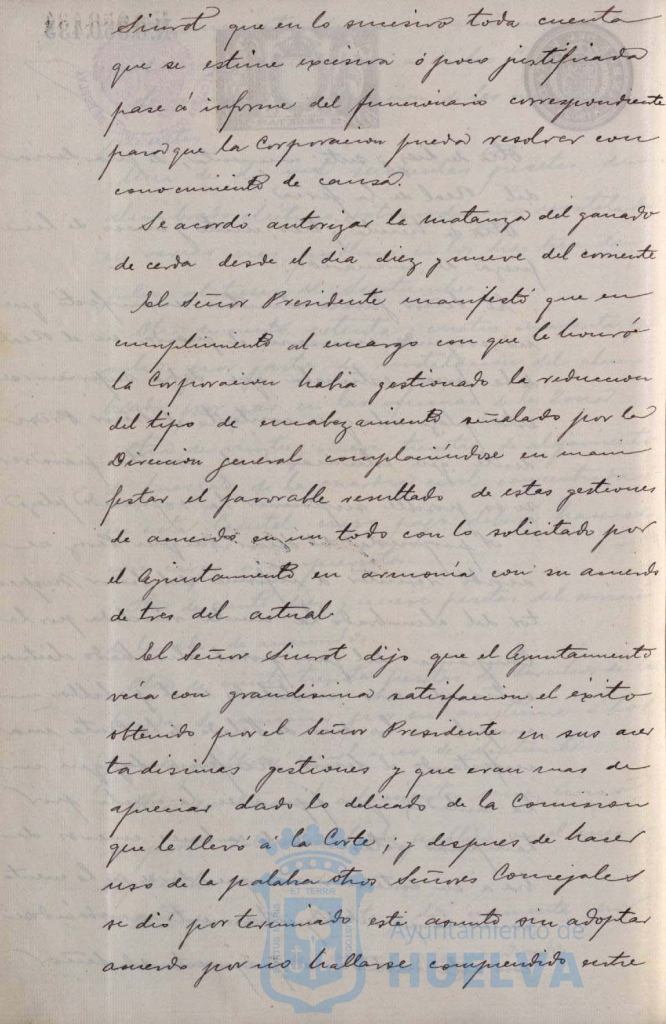 Siurot que en lo sucesivo toda cuenta
que se estime excesiva ó poco justificada
pase á informe del funcionario correspondiente
para que la Corporacion pueda resolver con
conocimiento de causa.
Se acordó autorizar la matanza del ganado
de cerda desde el dia diez y nueve del corriente
El Señor Presidente manifestó que en
cumplimiento al encargo con que le honró
la Corporacion habia gestionado la reduccion
del tipo de encabezamiento señalado por la
Direccion general complaciéndose en mani
festar el favorable resultado de estas gestiones
de acuerdo en un todo con lo solicitado por
el Ayuntamiento en armonía con su acuerdo
de tres del actual.
El Señor Siurot dijo que el Ayuntamiento
veia con grandisima satisfacion el éxito
obtenido por el Señor Presidente en sus acer
tadisimas gestiones y que eran mas de
apreciar dado lo delicado de la Comision
que le llevó á la Corte; y despues de hacer
uso de la palabra otros Señores Concejales
se dió por terminado este asunto sin adoptar
acuerdo por no hallarse comprendido entre
Ayuntamiento de
HUELVA